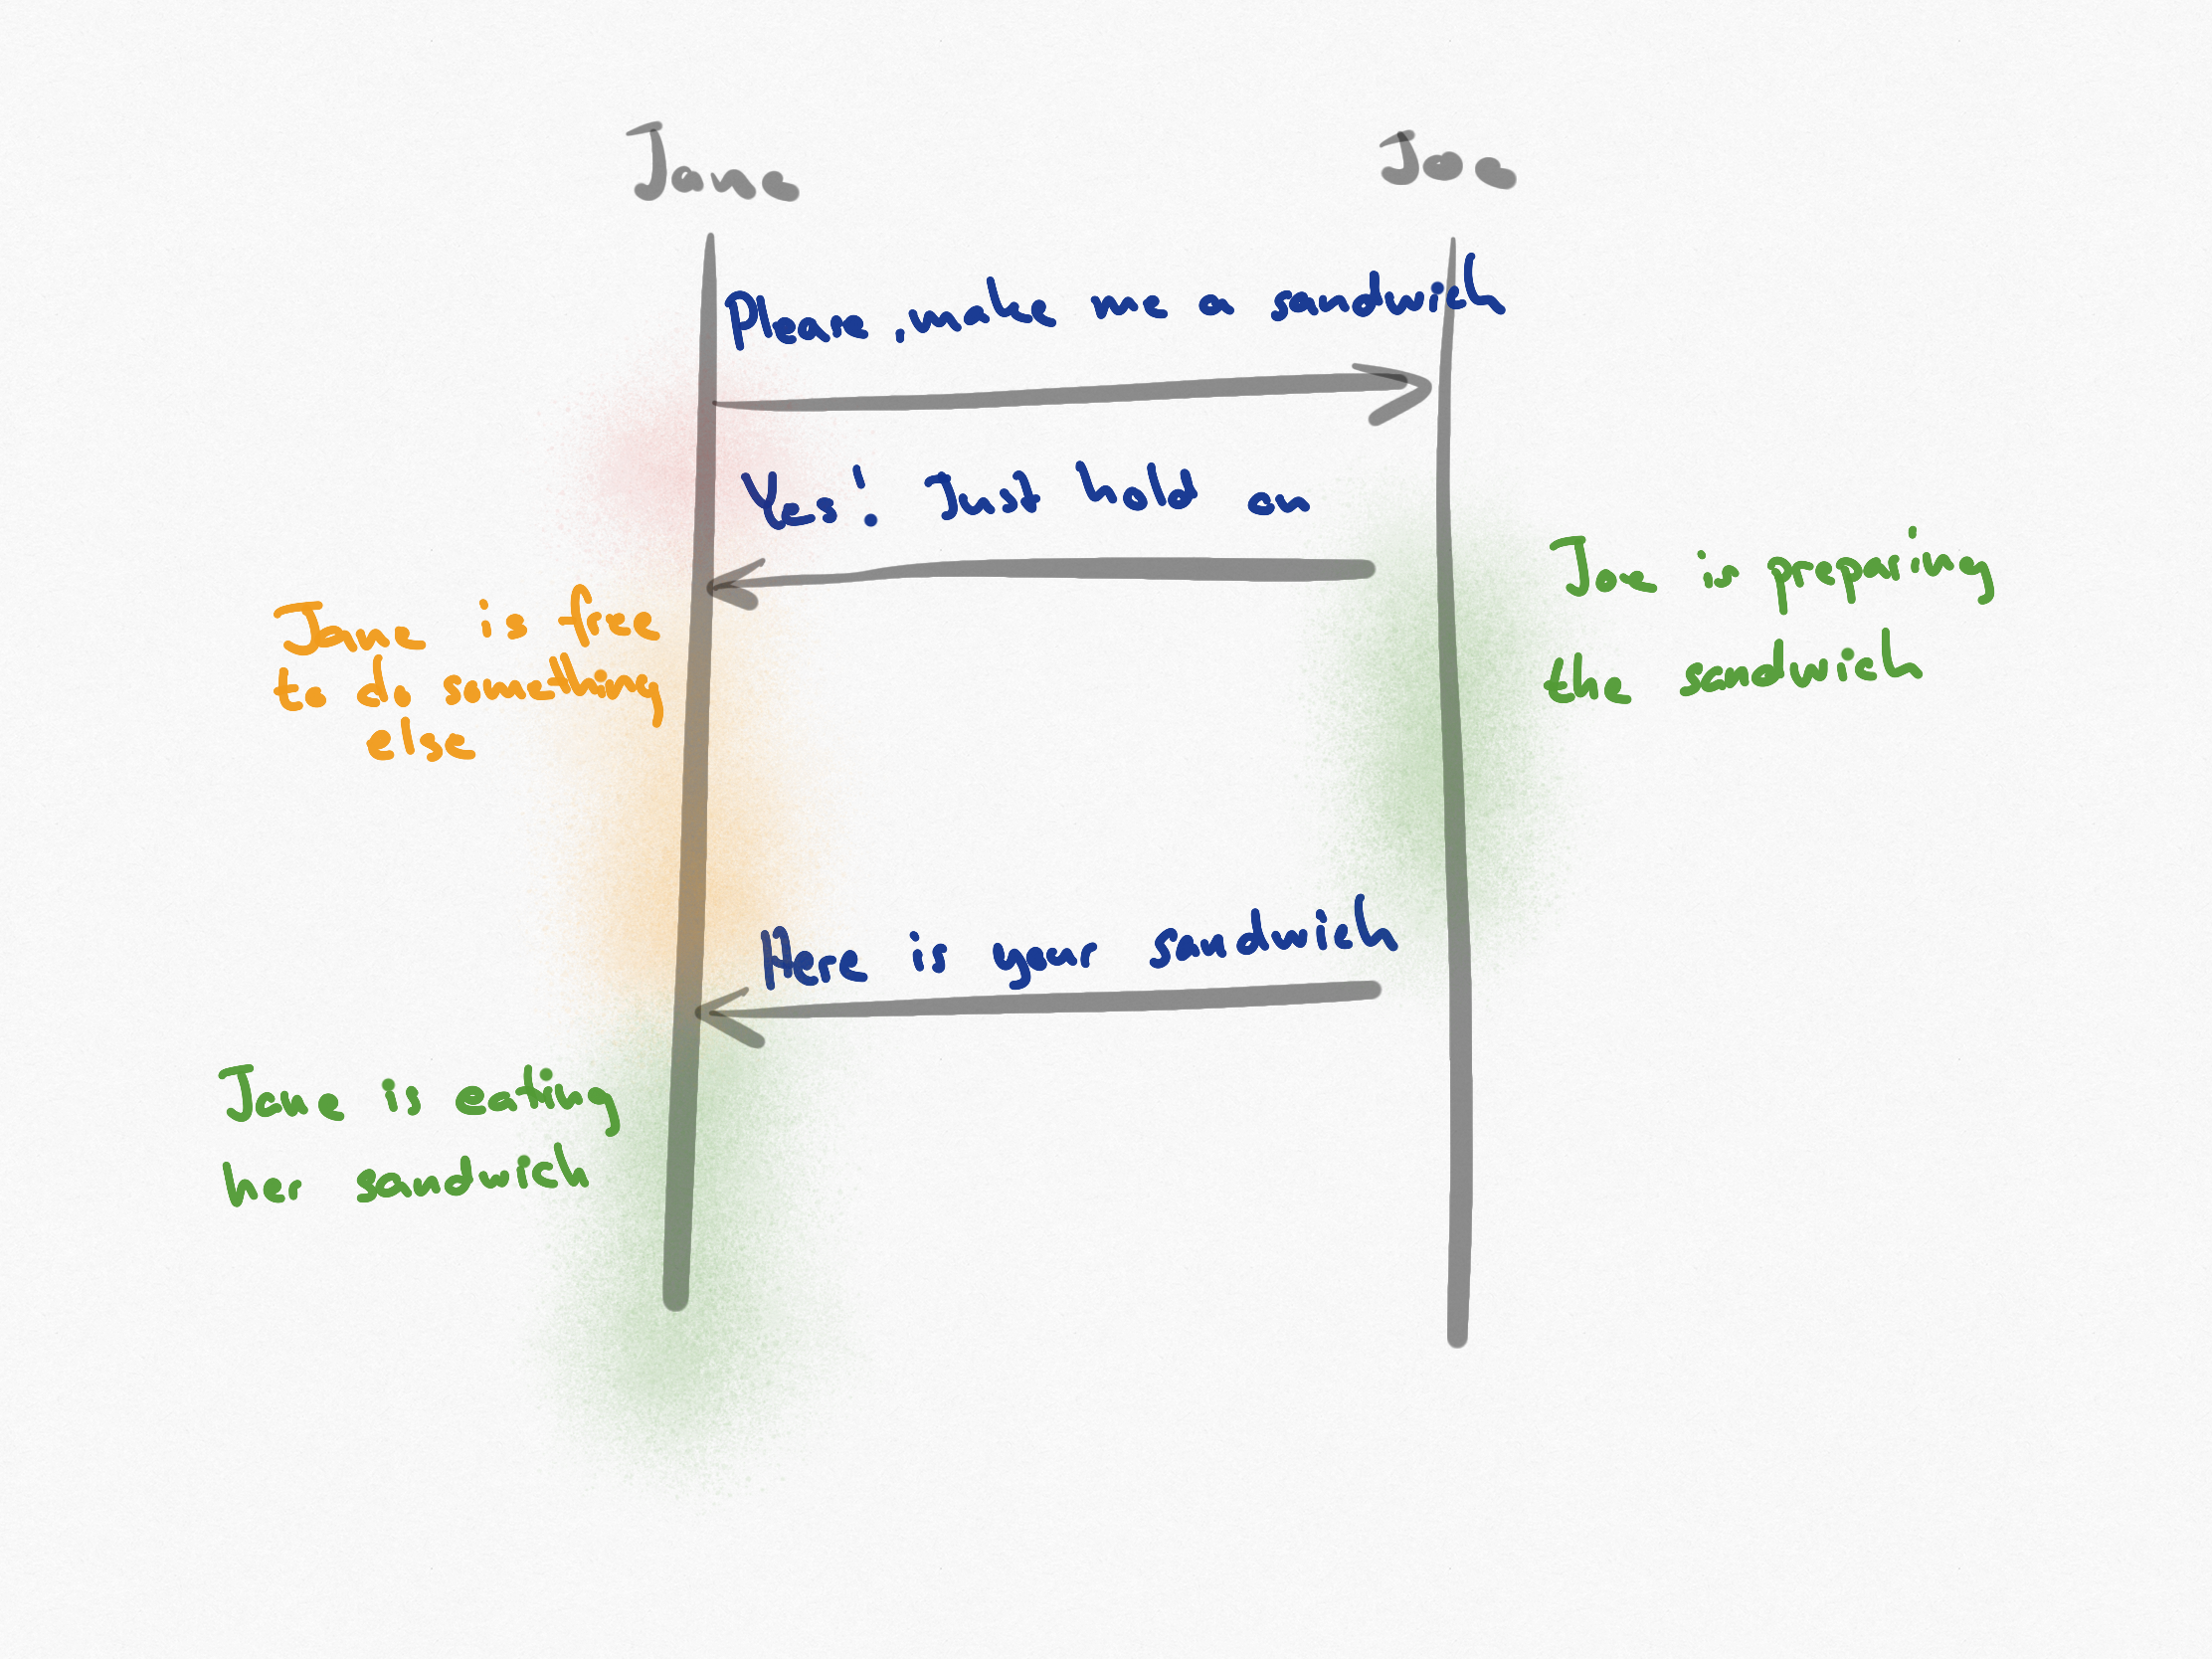 Jane
Joe
Please, make me a sandwich
Yes! Just hold on
Joe is preparing
the sandwich
Jane is free
to do something
else
Here is your sandwich
Jane is eating
her sandwich